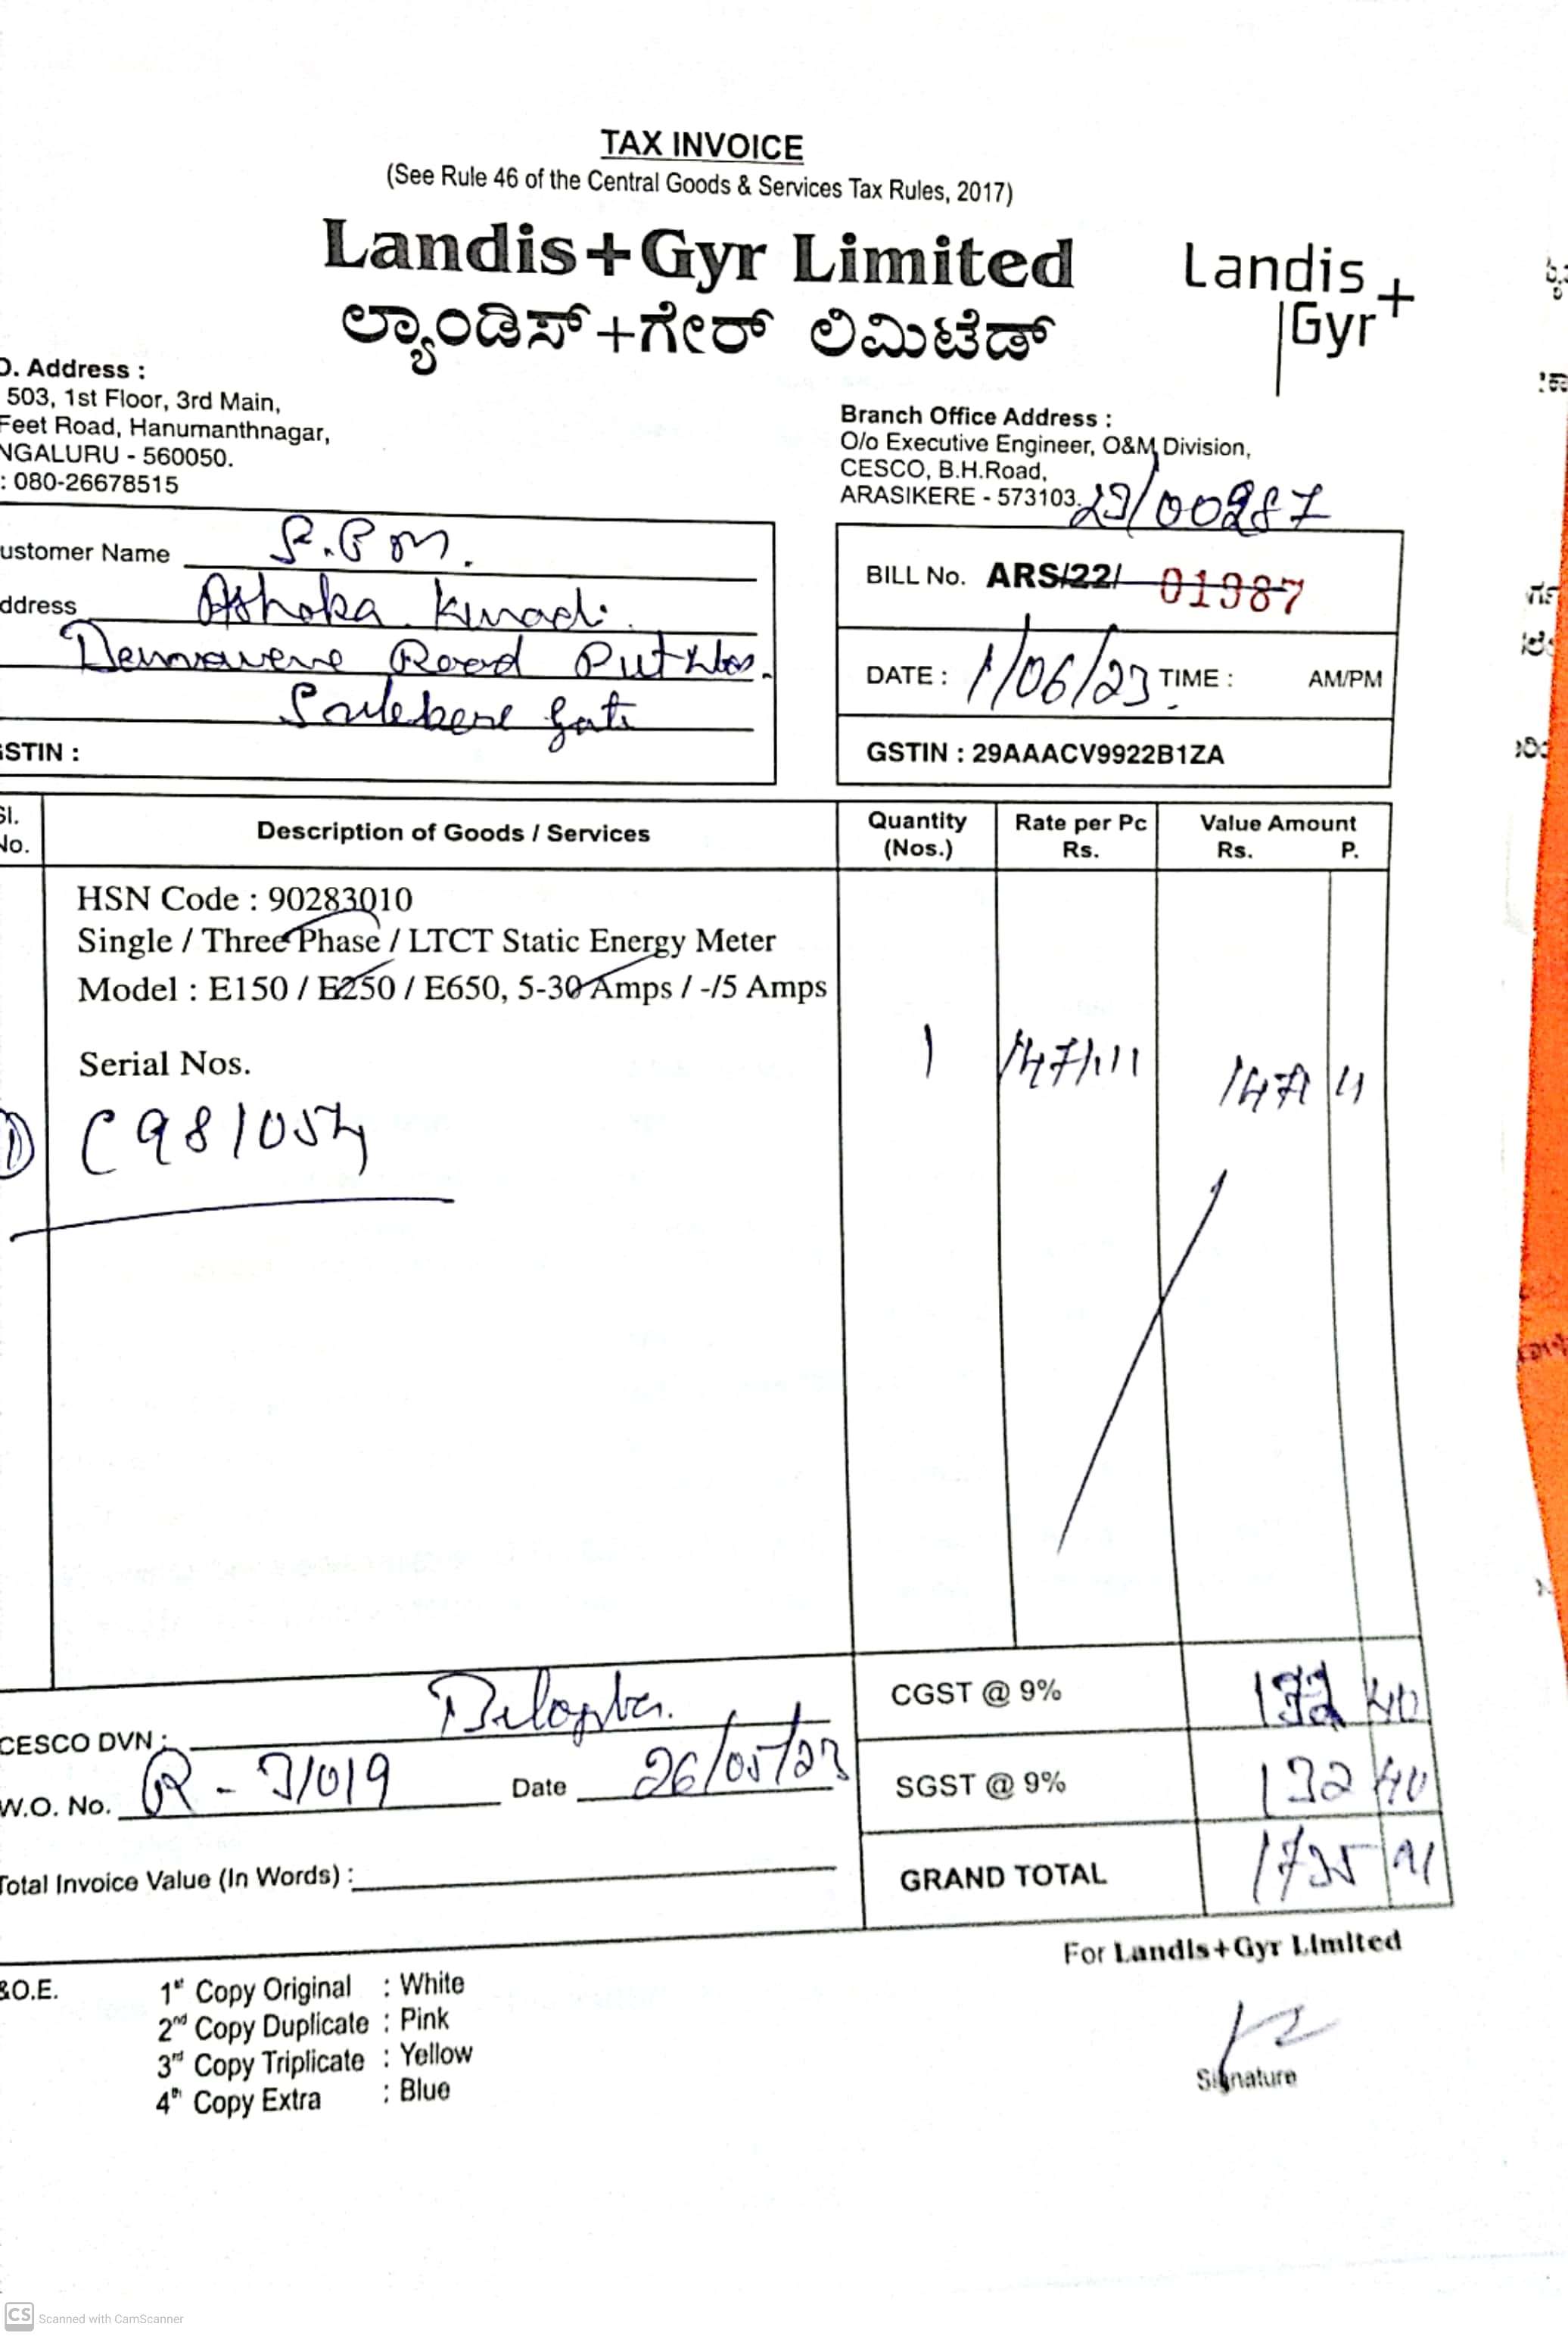 TAX INVOICE
(See Rule 46 of the Central Goods & Services Tax Rules, 2017)
Landis+Gyr Limited
ಲ್ಯಾಂಡಿಸ್+ಗೇರ್ ಲಿಮಿಟೆಡ್
Landis+
Gyr
O. Address :
503, 1st Floor, 3rd Main,
Feet Road, Hanumanthnagar,
NGALURU - 560050.
: 080-26678515
Branch Office Address :
O/o Executive Engineer, O&M Division,
CESCO, B.H.Road,
ARASIKERE - 573103.
23/00287
ustomer Name S.P.M.
ddress Ashoka
Road
Gate
GSTIN :
BILL No. ARS/22/ 01987
DATE : 1/06/23 TIME : AM/PM
GSTIN : 29AAACV9922B1ZA
Sl. No. Description of Goods / Services Quantity (Nos.) Rate per Pc Rs. Value Amount Rs. P.
HSN Code : 90283010
Single / Three Phase / LTCT Static Energy Meter
Model : E150 / E250 / E650, 5-30 Amps / -/5 Amps
Serial Nos. 1 1471.11 1471 11
1) C981054
CGST @ 9% 132 40
CESCO DVN :
W.O. No. R - 31019 Date 26/05/23
SGST @ 9% 132 40
Total Invoice Value (In Words) :
GRAND TOTAL 1735 91
For Landis+Gyr Limited
&O.E.
1st Copy Original : White
2nd Copy Duplicate : Pink
3rd Copy Triplicate : Yellow
4th Copy Extra : Blue
Signature
CS Scanned with CamScanner